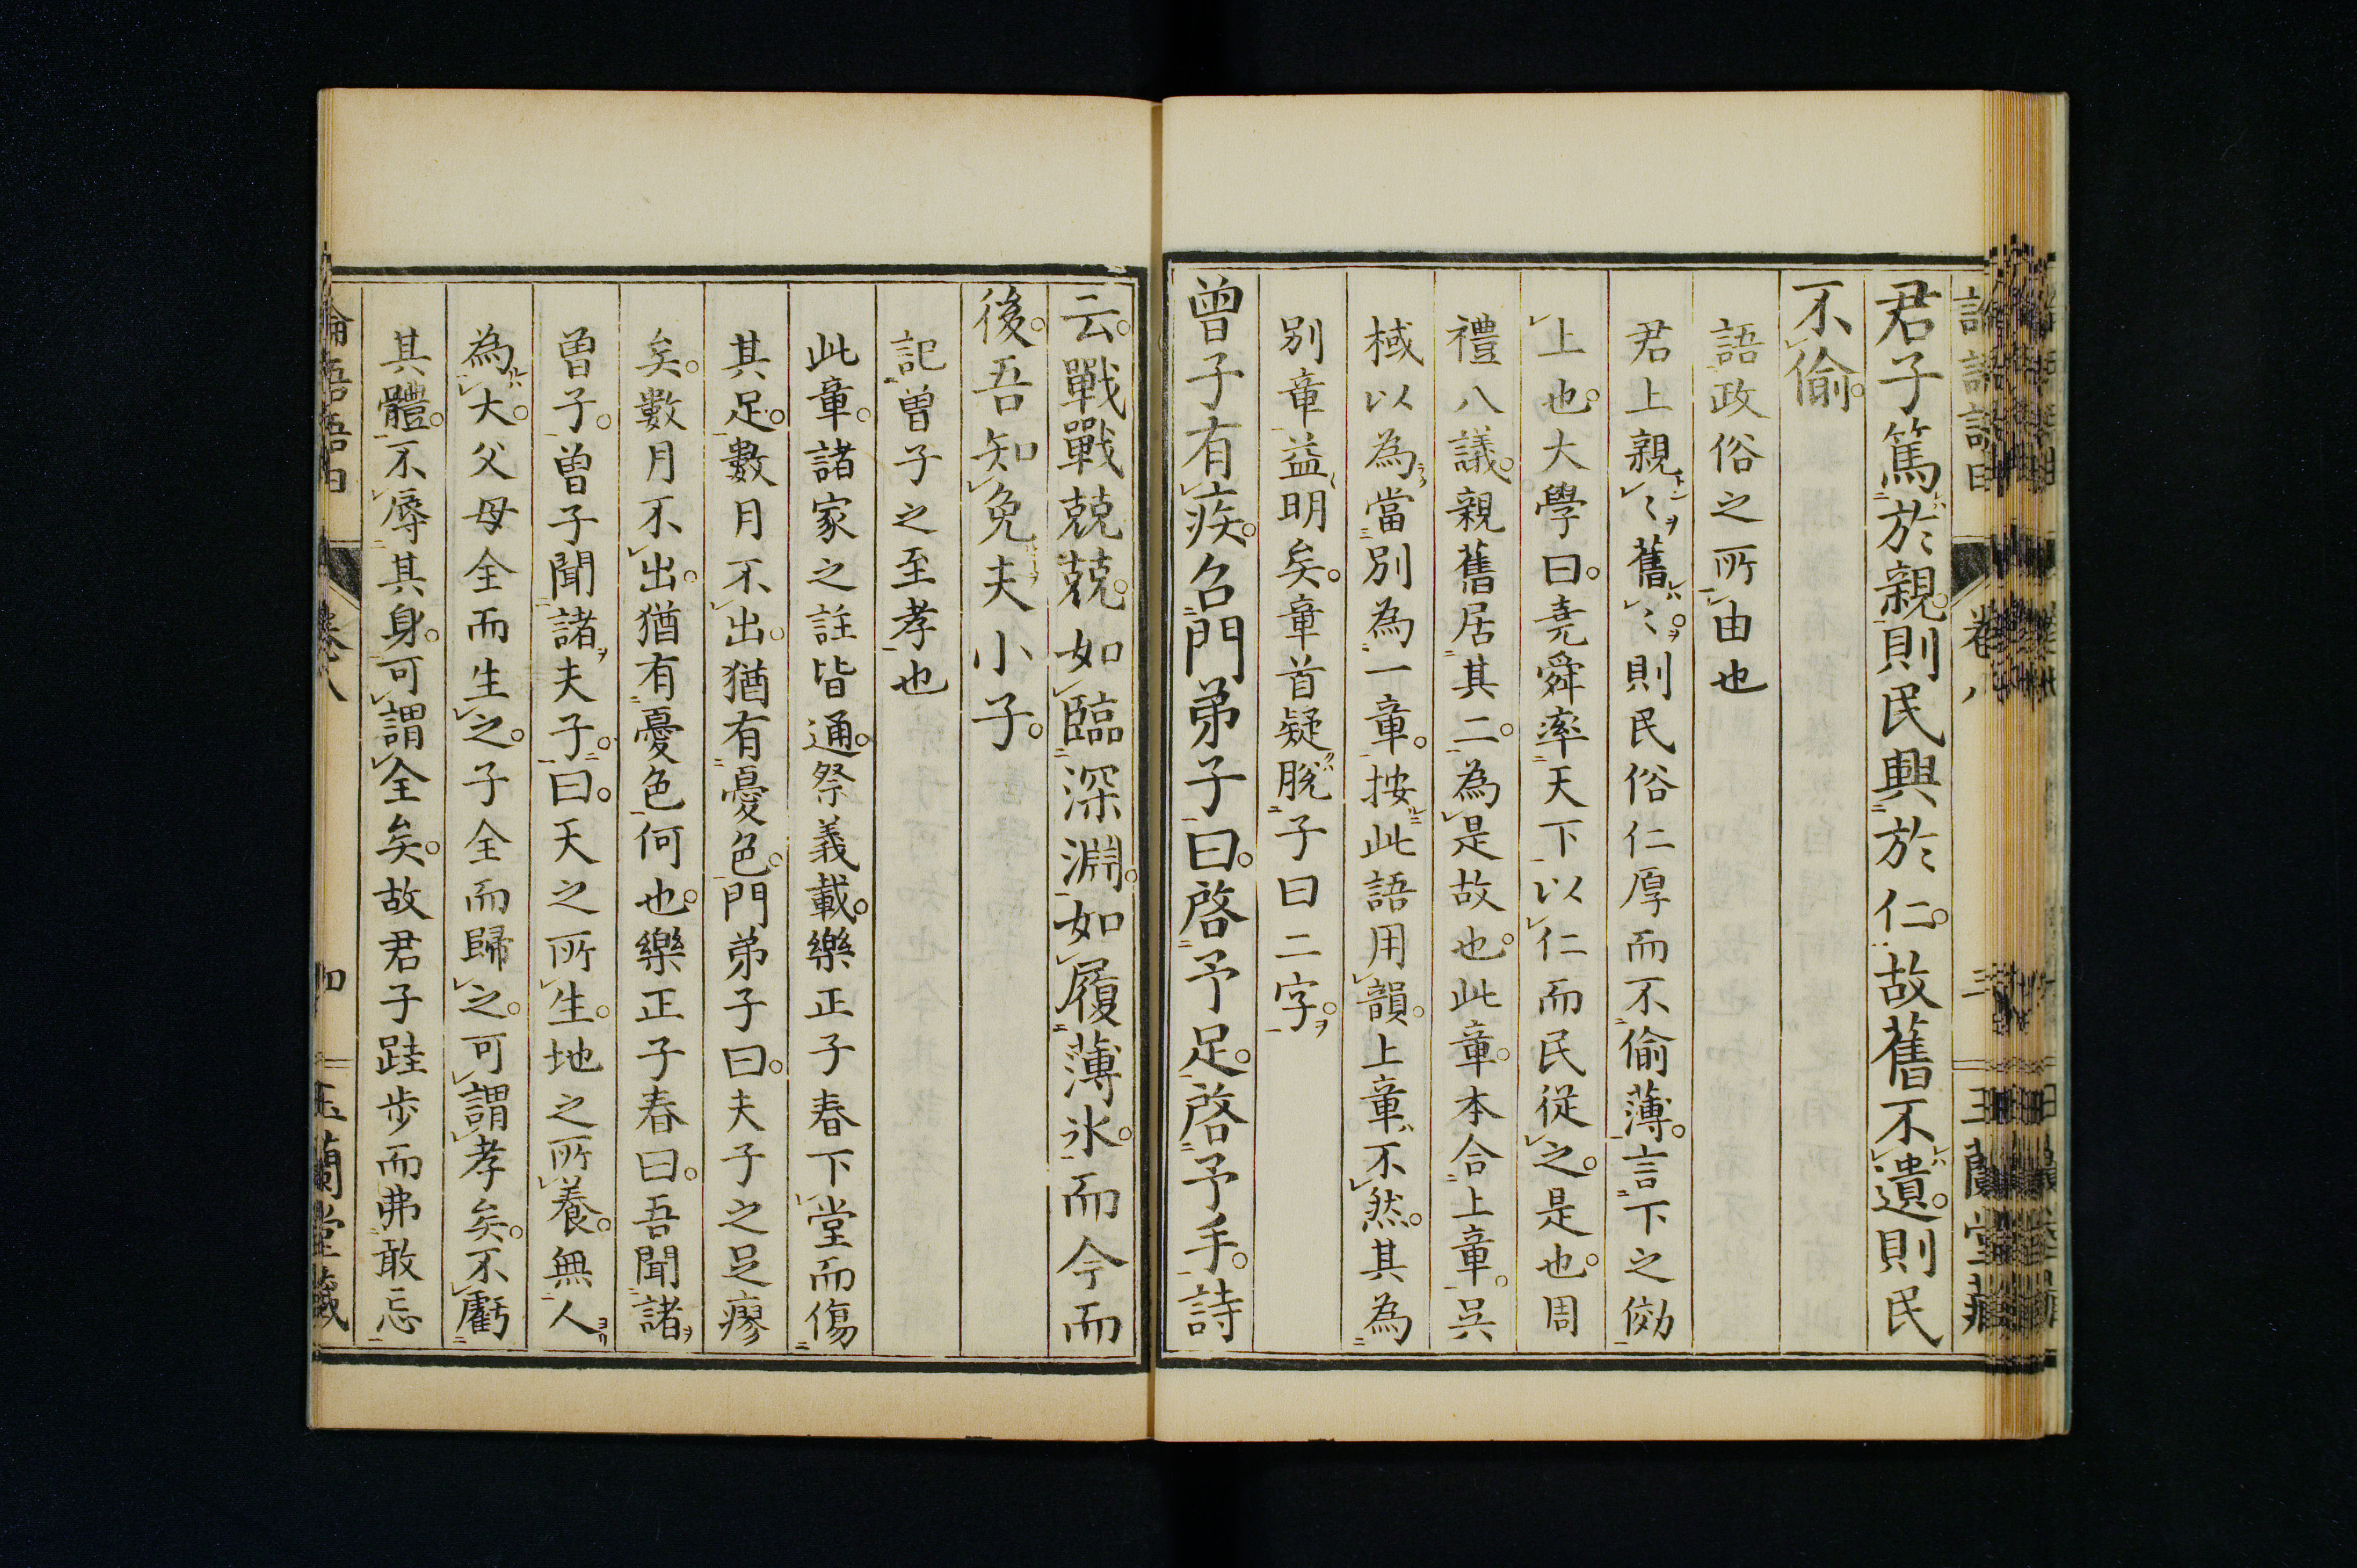 君子篤於親。則民興於仁。故舊不遺。則民
不偷。
語政俗之所由也
君上親〻舊〻。則民俗仁厚而不偷薄。言下之傚
上也。大學曰。堯舜率天下以仁而民從之。是也。周
禮八議。親舊居其二。為是故也。此章。本合上章。吳
棫以為當別為一章。按此語用韻。上章不然。其為
別章益明矣。章首疑脫子曰二字。
曾子有疾。召門弟子曰。啓予足。啓予手。詩
云。戰戰兢兢。如臨深淵。如履薄氷。而今而
後。吾知免夫小子。
記曽子之至孝也
此章。諸家之註皆通。祭義載。樂正子春下堂而傷
其足。數月不出。猶有憂色。門弟子曰。夫子之足瘳
矣。數月不出。猶有憂色何也。樂正子春曰。吾聞諸
曽子。曽子聞諸夫子。曰。天之所生。地之所養。無人
為大。父母全而生之。子全而歸之。可謂孝矣。不虧
其體。不辱其身。可謂全矣。故君子跬步而弗敢忘